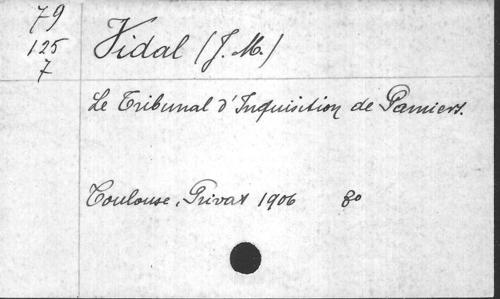 79
125
7
Vidal (J. M.)
Le Tribunal d'Inquisition de Pamiers.
Toulouse, Privat 1906 8o